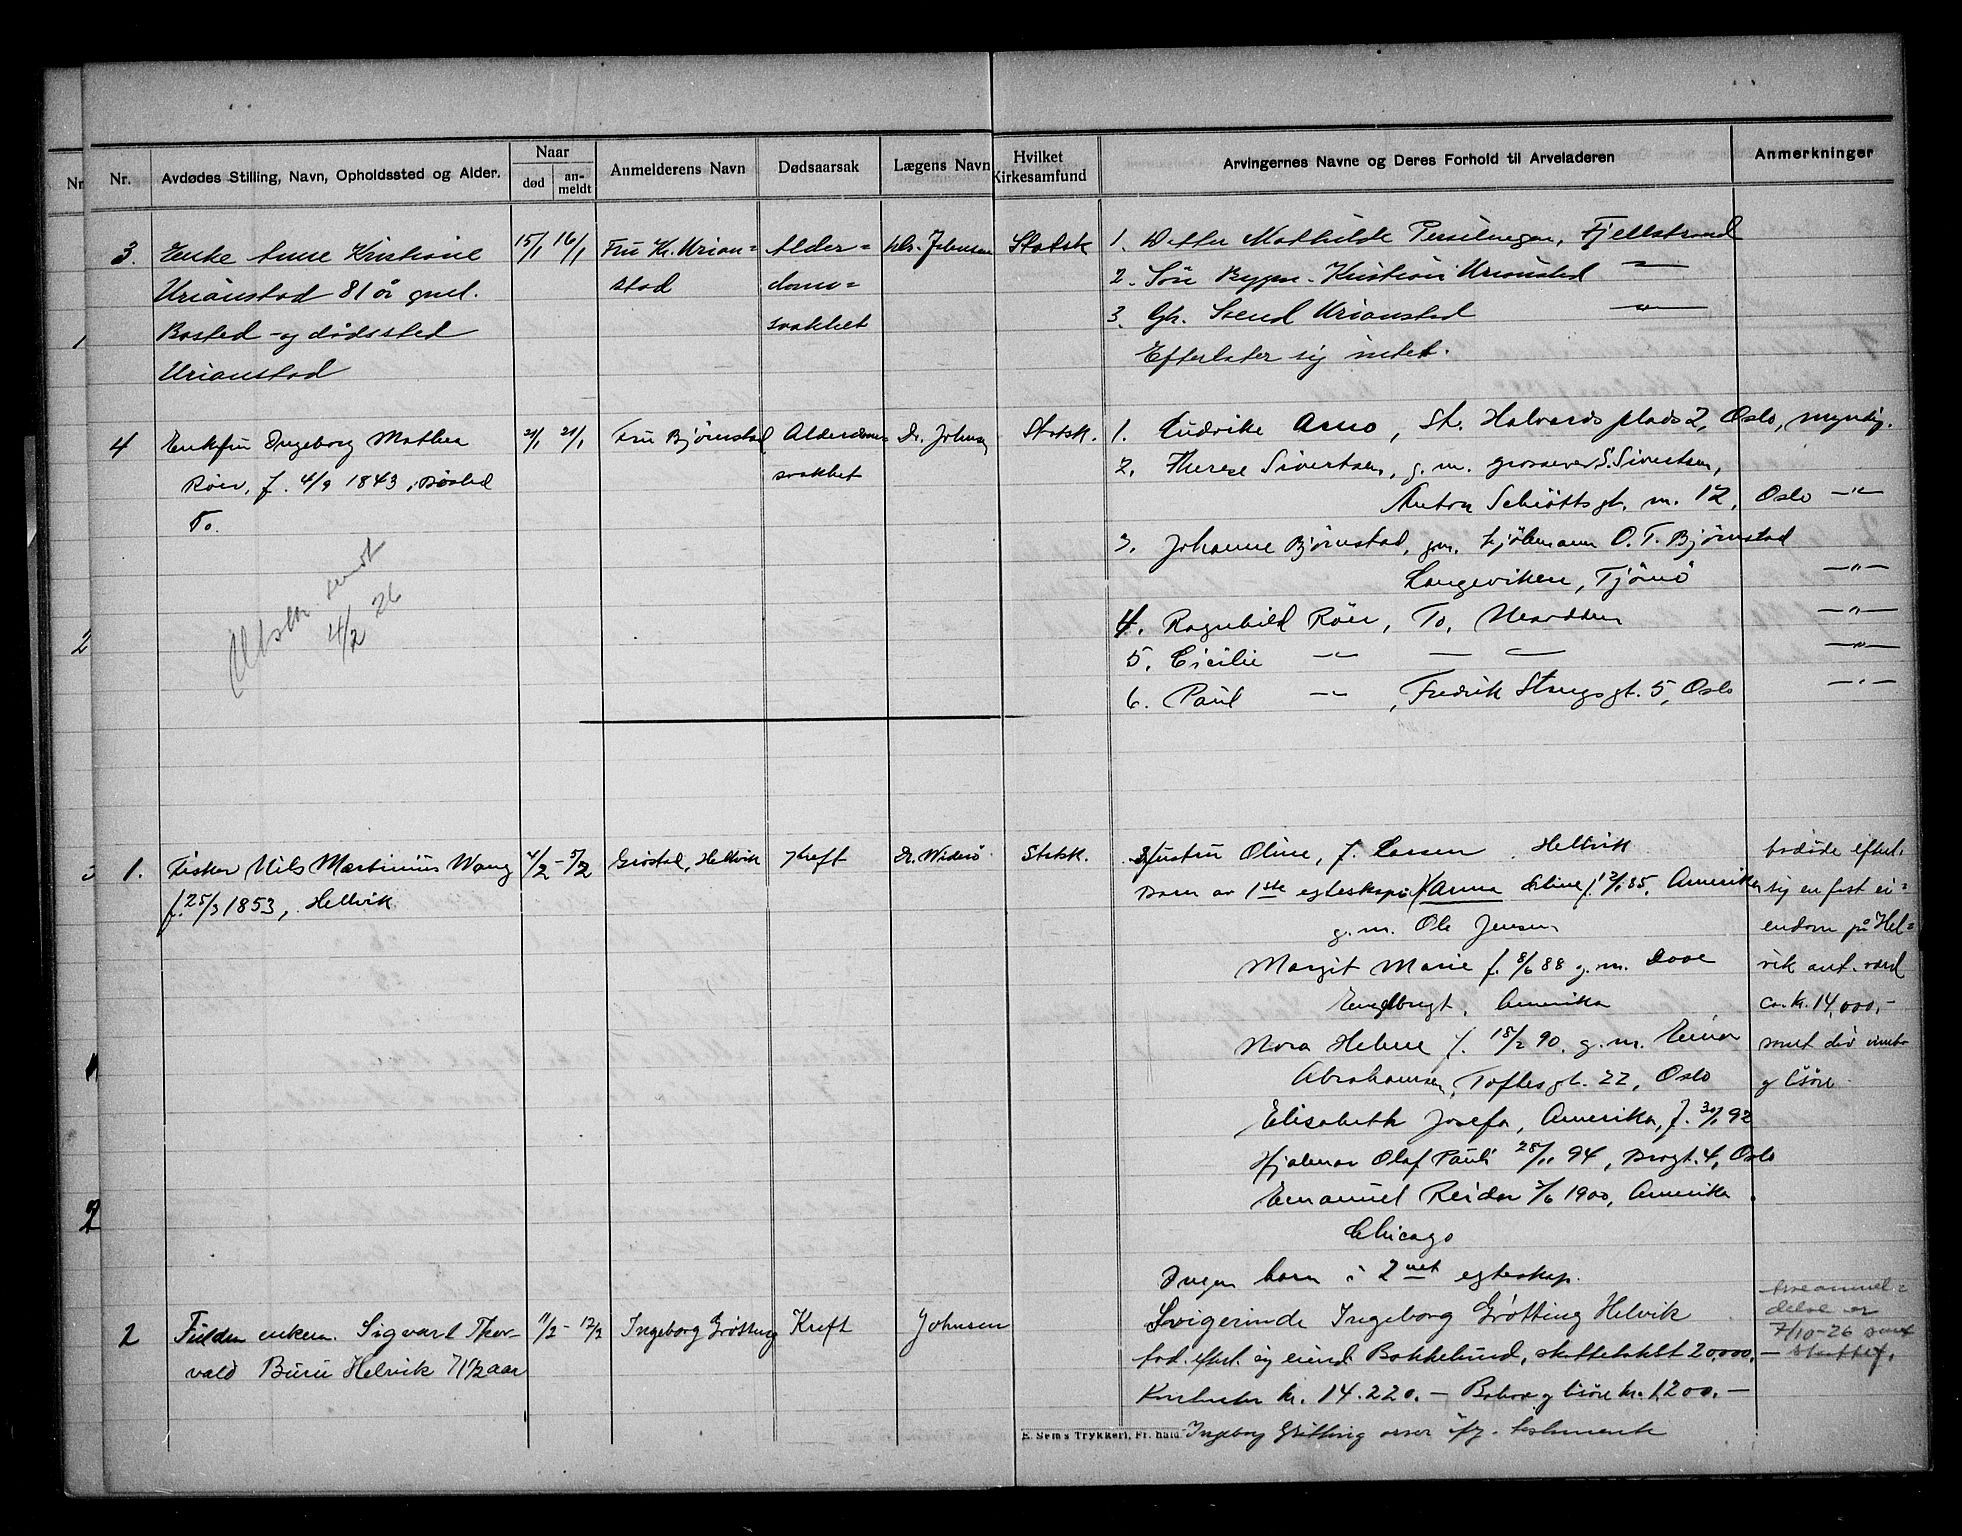 Nr.
Nr.
Avdødes Stilling, Navn, Opholdssted og Alder.
Naar
død
an-
meldt
Anmelderens Navn
Dødsaarsak
Lægens Navn
Hvilket
Kirkesamfund
Arvingernes Navne og Deres Forhold til Arveladeren
Anmerkninger
1
2
3
1
2
3. Enke Anne Kristiane
Urianstad 81 år gml.
Bosted - og dødssted
Urianstad
15/1 16/1
Fru Kr. Urian=
stad
Alder=
doms=
svakhet
Dr. Johnsen
Statsk
1. Detter Mathilde Persilengen, Fjellstrand
2. Søn Bygm. Kristian Urianstad —"—
3. Gh. Svend Urianstad —"—
Efterlater sig intet.
4 Enkefru Ingeborg Mathea
Röer, f. 4/9 1843, Bosted
To.
sendt
4/2 26
21/1 21/1
Fru Bjørnstad
Alderdoms-
svakhet
Dr. Johnsen
Statsk.
1. Ludvike Aano, St. Halvards plads 2, Oslo, myndig.
2. Therese Sivertsen, g.m. grosserer S. Sivertsen,
Anton Schiøtts gt. nr. 12, Oslo —"—
3. Johanne Bjørnstad, gm. sjömann O. T. Bjørnstad
Langeviken, Tjömö —"—
4. Ragnhild Röer, To, Nesodden —"—
5. Cicilie —"— — — —"—
6. Paul —"—, Fredrik Stangs gt. 5, Oslo —"—
1. Fisker Nils Martinius Wang
f. 25/3 1853, Hellvik
4/2 - 5/2
Grøstad, Hellvik
Kreft
Dr. Widerö
Statsk.
Hustru Oline, f. Larsen Hellvik
Barn av 1ste egteskap: Anna Oline f. 12/1 85, Amerika
g.m. Ole Jensen
Margit Marie f. 8/6 88 g.m. Dave
Engelbregt, Amerika
Nora Helene f. 18/2 90, g.m. Einar
Abrahamsen, Toftes gt. 22, Oslo
Elisabeth Josefa, Amerika, f. 30/1 92
Hjalmar Olaf Pauli 28/11 94, Brogt. 4, Oslo
Emanuel Reidar 3/6 1900, Amerika
Chicago
Ingen barn i 2net egteskap.
Avdøde efterl.
sig en fast ei=
endom på Hel=
vik ant. værd
ca. kr. 14,000,-
samt div innbo
og løsøre.
2 Fulldm enkem. Sigvart Thor-
vald Buru Helvik 71 1/2 aar
11/2 - 12/2
Ingeborg Grøtting
Kreft
Johnsen
Svigerinde Ingeborg Grøtting Helvik
Avd. efterl. sig eiend. Bakkelund, skattetakst 20,000,-
Kontanter kr. 14.220.- Bohave og løsøre kr. 1,200.-
Ingeborg Grøtting arver ifg. testamente
Arveanmel=
delse er
7/10-26 sendt
skattef.
E. Sem's Trykkeri, Fr. hald